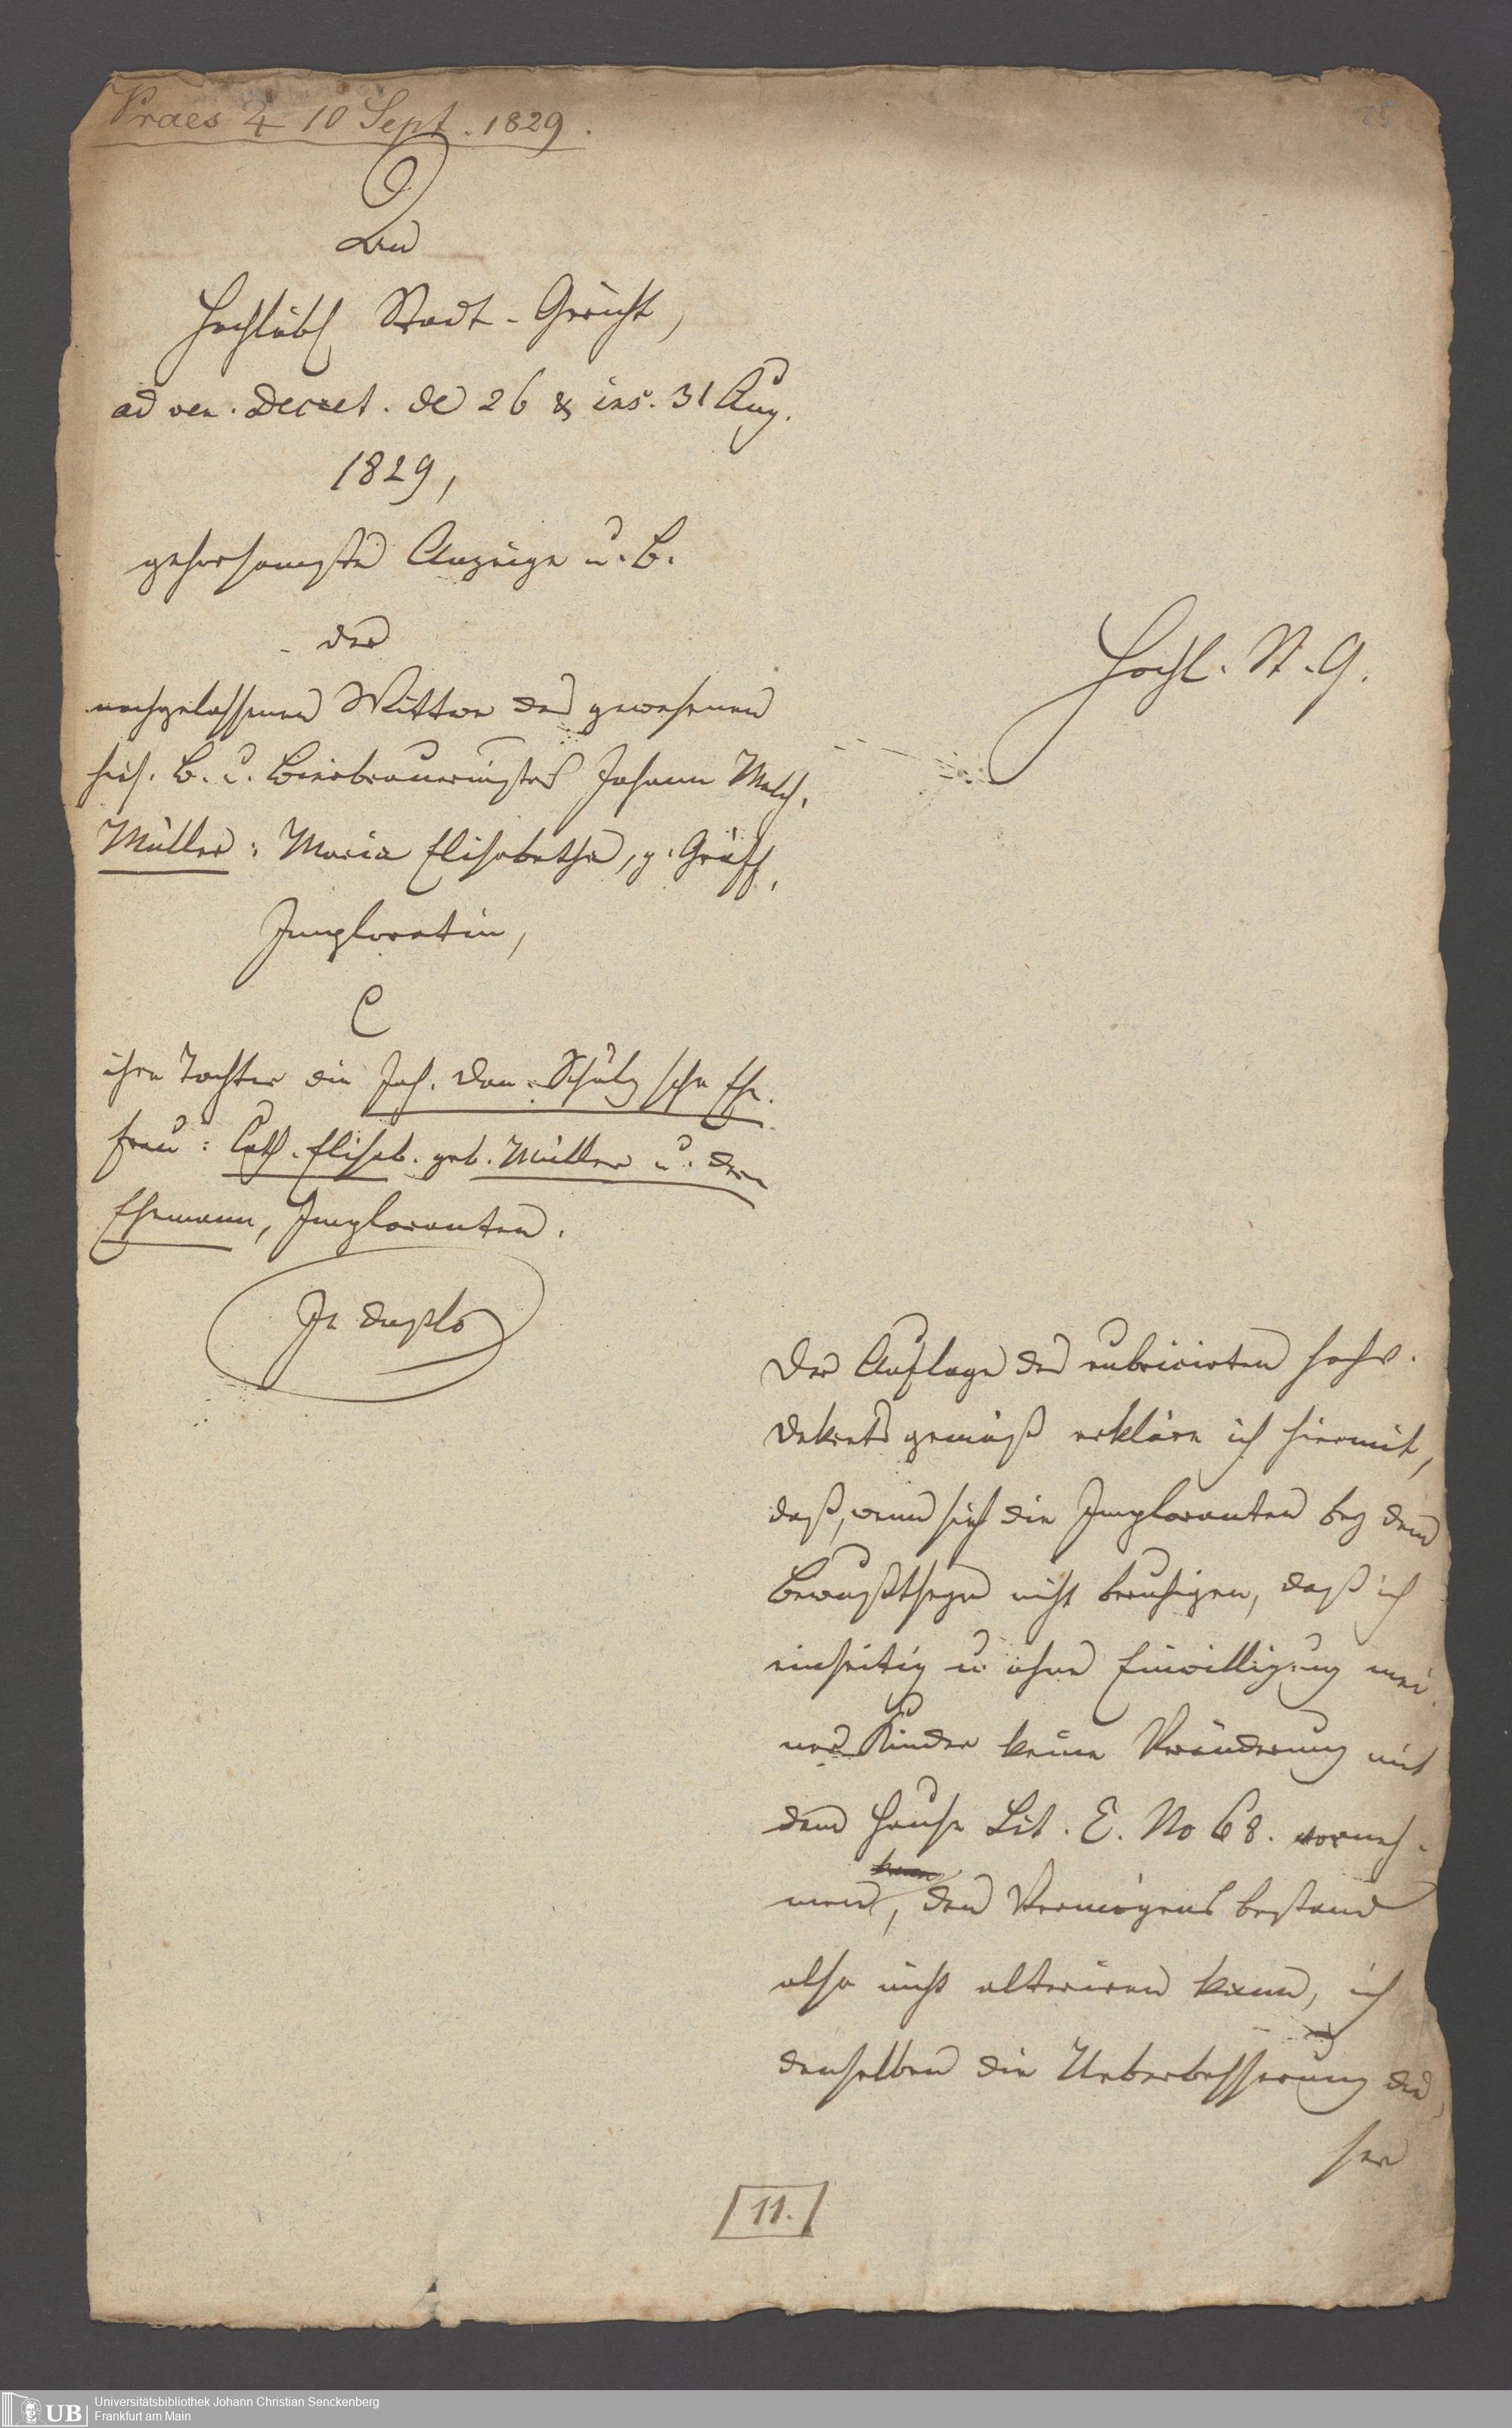 Praes ♃ 10 Sept. 1829.
25
An
Hochlöbl Stadt-Gericht,
ad ven. Decret. de 26 & ins. 31 Aug.
1829,
gehorsamste Anzeige u. B.
der
nachgelassenen Wittwe des gewesenen
hies. B. u. Bierbrauermstrs Johann Melch.
Müller: Maria Elisabetha, g. Gräff,
Imploratin,
C
ihre Tochter die Joh. Dan. Schulz sche Eh.
frau: Cath. Elisab. geb. Müller u. den
Ehemann, Imploranten.
In duplo
Hochl. St. G.
Der Auflage des rubricirten hohv.
Dekrets gemäß erkläre ich hiermit,
daß, wenn sich die Imploranten bey dem
Bewußtseyn nicht beruhigen, daß ich
einseitig u ohne Einwilligung mei
ner Kinder keine Veränderung mit
dem Hause Lit. E. No 68. vorneh-
men, den Vermögensbestand
also nicht alteriren kann, ich
denselben die Ueberbesserung die
ser
11.
UB
Universitätsbibliothek Johann Christian Senckenberg
Frankfurt am Main